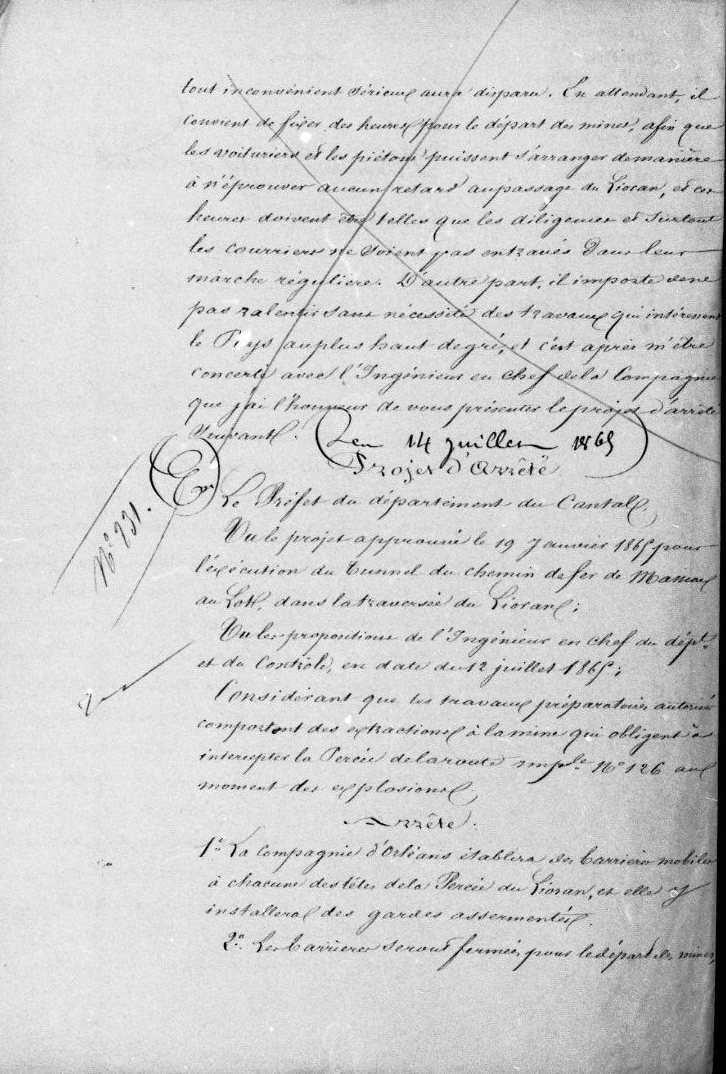 tout inconvénient sérieux aura disparu. En attendant, il
convient de fixer des heures pour le départ des mines, afin que
les voituriers et les piétons puissent s'arranger de manière
à n'éprouver aucun retard au passage du Lioran, et ces
heures doivent être telles que les diligences et surtout
les courriers ne soient pas entravés dans leur
marche régulière. D'autre part, il importe de ne
pas ralentir sans nécessité des travaux qui intéressent
le Pays au plus haut degré, et c'est après m'être
concerté avec l'Ingénieur en chef de la Compagnie
que j'ai l'honneur de vous présenter le projet d'arrêté
suivant.
14 Juillet 1865
Projet d'Arrêté
Nº 931.
Le Préfet du département du Cantal,
Vu le projet approuvé le 19 Janvier 1865 pour
l'exécution du tunnel du chemin de fer de Massiac
au Lot, dans la traversée du Lioran;
Vu les propositions de l'Ingénieur en chef du dépt.
et du Contrôle, en date du 12 juillet 1865;
Considérant que les travaux préparatoires autorisés
comportent des extractions à la mine qui obligent à
intercepter la Percée de la route imple Nº 126 aux
moment des explosions,
Arrête.
1º La compagnie d'Orléans établira des barrières mobiles
à chacune des têtes de la Percée du Lioran, et elle y
installera des gardes assermentés.
2º. Les barrières seront fermées, pour le départ des mines,